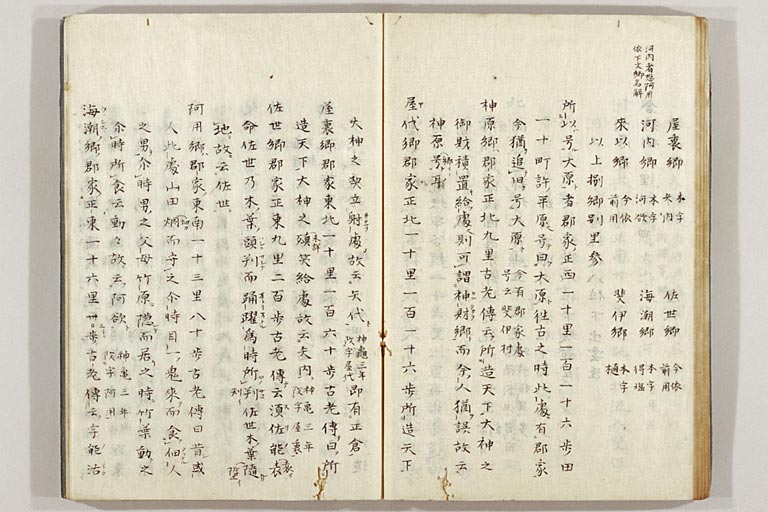 河内者悲阿用
依下文郷名解
屋裏郷 本字矢内 佐世郷 今依前用
河内郷 本字河内 海潮郷 本字得塩
來以郷 今依前用 斐伊郷 本字樋
以上捌郷別里参
所以号大原者郡家正西一十里一百一十六歩田
一十町許平原号曰大原往古之時此處有郡家
今猶追旧号大原 今有郡家處号云斐伊村
神原郷郡家正北九里古老傳云所造天下大神之
御財積置給處則可謂神財郷而今人猶誤故云
神原号耳
屋代郷郡家正北一十里一百一十六歩所造天下
大神之契立射處故云矢代 神亀三年改字屋代 即有正倉
屋裏郷郡家東北一十里一百六十歩古老傳曰所
造天下大神之殖笑給處故云矢内 神亀三年改字屋裏
佐世郷郡家正東九里二百歩古老傳云須佐能袁
命佐世乃木葉頭刺而踊躍為時所刺佐世木葉墮
地故云佐世
阿用郷郡家東南一十三里八十歩古老傳曰昔或
人此處山田烟而守之介時目一鬼來而食佃人
之男介時男之父母竹原隠而居之時竹葉動之
介時所食云動々故云阿欲 神亀三年改字阿用
海潮郷郡家正東一十六里卅三歩古老傳云宇能治